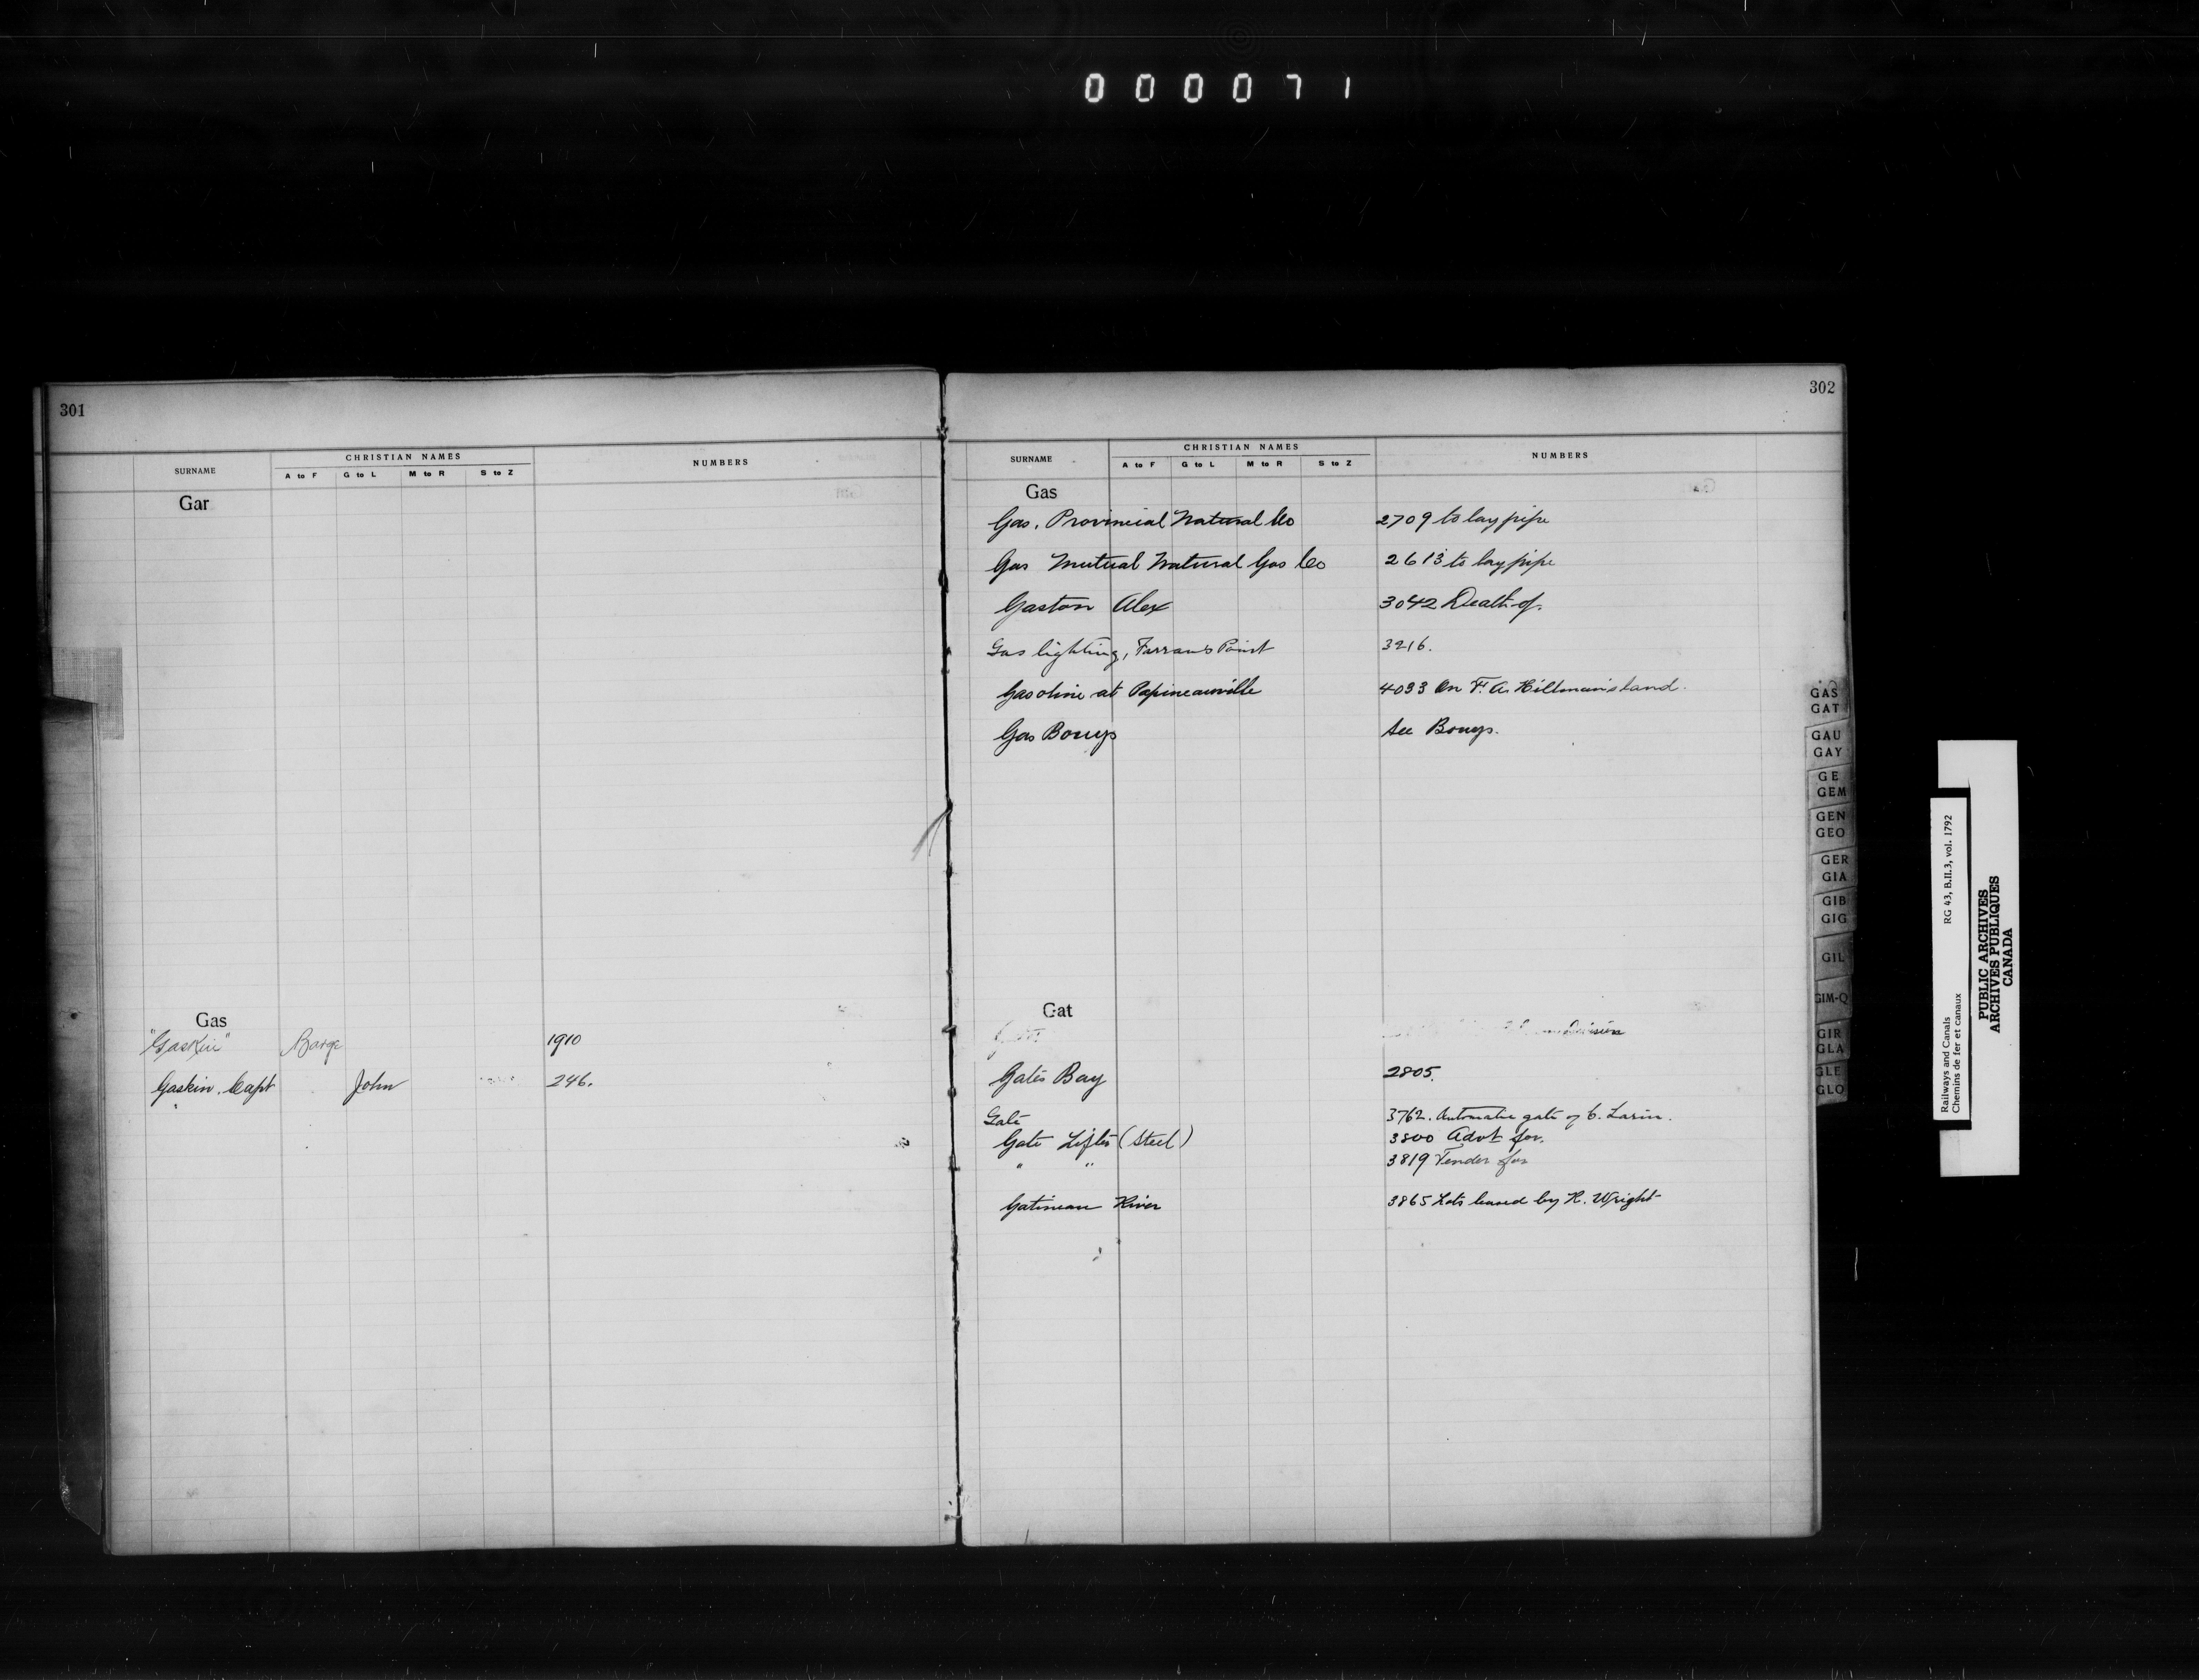 000071
301
SURNAME CHRISTIAN NAMES NUMBERS
A to F G to L M to R S to Z
Gar
Gas
"Gaskin" Barge 1910
Gaskin. Capt John 246.
302
SURNAME CHRISTIAN NAMES NUMBERS
A to F G to L M to R S to Z
Gas
Gas, Provincial Natural Co 2709 to lay pipe
Gas Mutual Natural Gas Co 2613 to lay pipe
Gaston Alex 3042 Death of.
Gas lighting, Farrans Point 3216.
Gasoline at Papineauville 4093 On F. A. Hillman's land.
Gas Bouys See Bouys.
Gat
Division
Gates Bay 2805.
Gate 3762. Automatic gate of C. Larin.
Gate Lifter (Steel) 3800 Advt for.
" " 3819 Tender for
Gatineau River 3865 Lots leased by H. Wright
GAS
GAT
GAU
GAY
GE
GEM
GEN
GEO
GER
GIA
GIB
GIG
GIL
GIM-Q
GIR
GLA
GLE
GLO
Railways and Canals RG 43, B.II.3, vol. 1792
Chemins de fer et canaux
PUBLIC ARCHIVES
ARCHIVES PUBLIQUES
CANADA